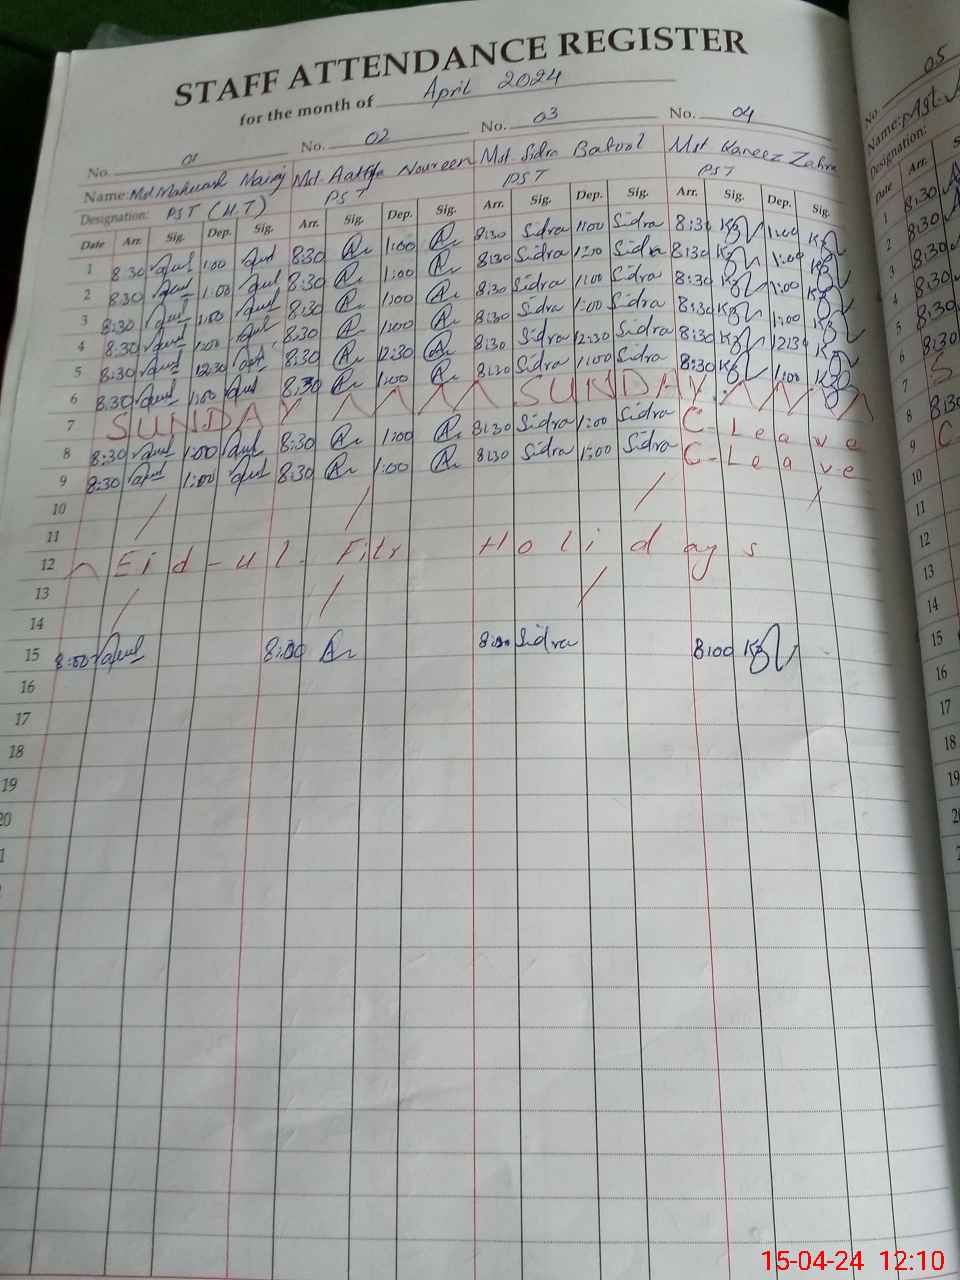 STAFF ATTENDANCE REGISTER
for the month of April 2024
No. 01 No. 02 No. 03 No. 04
Name: Mst Mst. Noureen Mst Sidra Batool Mst Kaneez Zahra
Designation: PST (H.T) PST PST PST
Date Arr. Sig. Dep. Sig. Arr. Sig. Dep. Sig. Arr. Sig. Dep. Sig. Arr. Sig. Dep. Sig.
1 8:30 1:00 8:30 1:00 8:30 Sidra 1:00 Sidra 8:30 1:00
2 8:30 1:00 8:30 1:00 8:30 Sidra 1:00 Sidra 8:30 1:00
3 8:30 1:00 8:30 1:00 8:30 Sidra 1:00 Sidra 8:30 1:00
4 8:30 1:00 8:30 1:00 8:30 Sidra 1:00 Sidra 8:30 1:00
5 8:30 12:30 8:30 12:30 8:30 Sidra 12:30 Sidra 8:30 12:30
6 8:30 1:00 8:30 1:00 8:30 Sidra 1:00 Sidra 8:30 1:00
7 SUNDAY SUNDAY
8 8:30 1:00 8:30 1:00 8:30 Sidra 1:00 Sidra C-Leave
9 8:30 1:00 8:30 1:00 8:30 Sidra 1:00 Sidra C-Leave
10
11
12 Eid-ul-Fitr Holidays
13
14
15 8:00 8:00 8:00 Sidra 8:00
16
17
18
19
20
No. 05
Name:
Designation:
Date Arr.
1 8:30
2 8:30
3 8:30
4 8:30
5 8:30
6 8:30
7 S
8 8:30
9 C
10
11
12
13
14
15
16
17
18
19
15-04-24 12:10